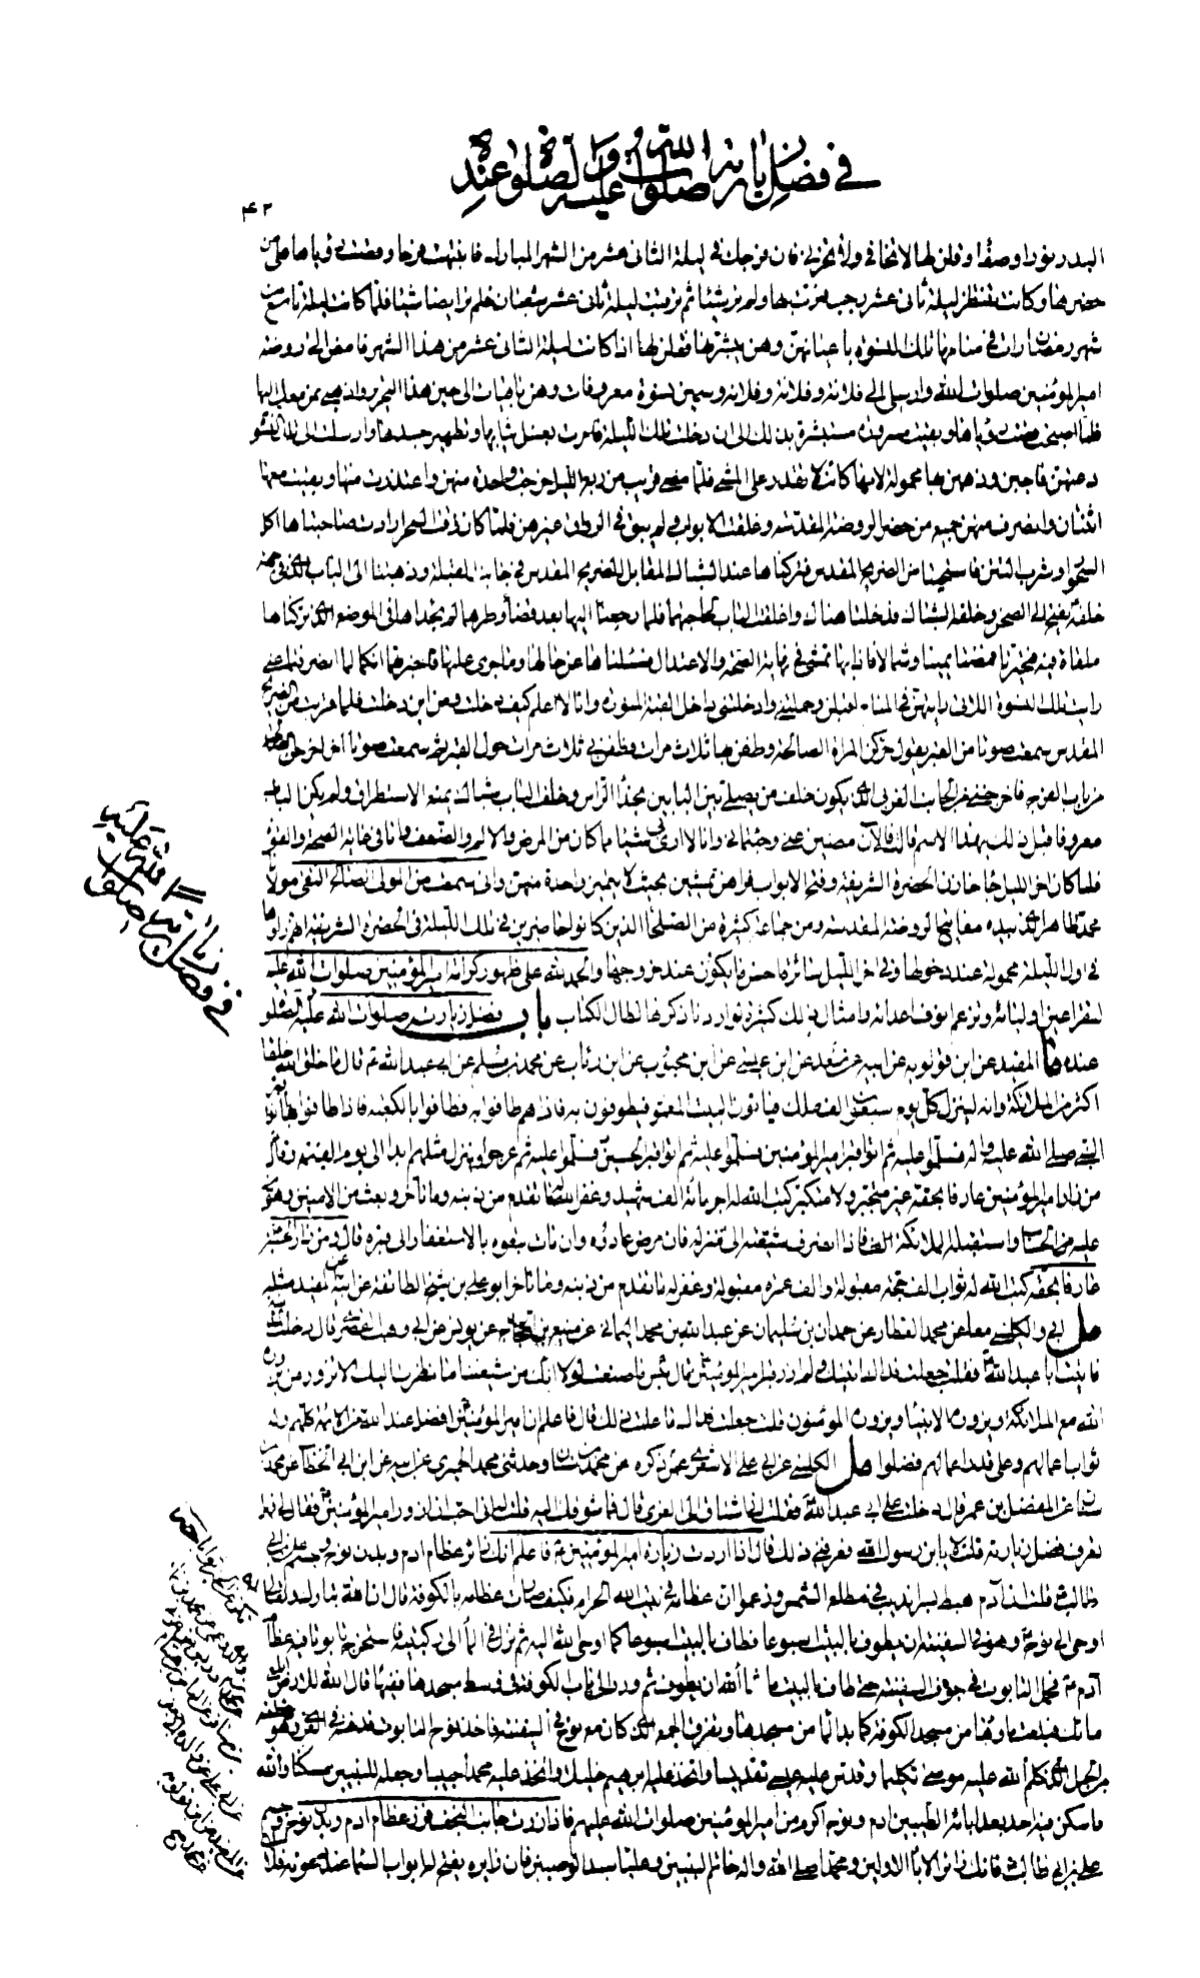 في فضل زيارته صلوات الله عليه والصلوة عنده
۴۲
البدر نورا وصفا وقلن لها لا تخافي ولا تحزني فان فرجك في ليلة الثاني عشر من الشهر المبارك فانتبهت فرحا وقصت رؤياها على من
حضرها وكانت تنتظر ليلة ثاني عشر رجب فمرت بها ولم تر شيئا ثم ترقبت ليلة ثاني عشر شعبان فلم تر ايضا شيئا فلما كانت ليلة تاسع من
شهر رمضان رات في منامها تلك النسوة باعيانهن وهن يبشرنها فقلن لها اذا كانت ليلة الثاني عشر من هذا الشهر فامض الى روضة
امير المؤمنين صلوات الله وارسلي الى فلانة وفلانة وفلانة وسمين نسوة معروفات وهن باقيات الى حين هذا التحرير واذهبي بهن معك اليها
فلما اصبحت قصت رؤياها وبقيت مسرورة مستبشرة بذلك الى ان دخلت تلك الليلة فامرت بغسل ثيابها وتطهير جسدها وارسلت الى تلك النسوة
دعتهن فاجبن وذهبن بها محمولة لانها كانت لا تقدر على المشي فلما مضى قريب من ربع الليل خرجت واحدة منهن واعتذرت منها وبقيت معها
اثنتان وانصرف منهن جميع من حضر الروضة المقدسة وغلقت الابواب ولم يبق في الرواق غيرهن فلما كان وقت السحر ارادت صاحبتاها اكل
السحور او شرب التتن فاستحيتا من الضريح المقدس فتركتاها عند الشباك المقابل للضريح المقدس في جانب القبلة وذهبتا الى الباب الذي في جهة
خلفه يفتح الى الصحن وخلفه الشباك فدخلتا هناك واغلقتا الباب لحاجتهما فلما رجعتا اليها بعد قضاء وطرهما لم تجداها في الموضع الذي تركتاها
ملقاة فيه فتحيرتا فمضتا يمينا وشمالا فاذا بها تمشي في نهاية الصحة والاعتدال فسئلتاها عن حالها وما جرى عليها فاخبرتهما انكما لما انصرفتما عني
رايت تلك النسوة اللاتي رايتهن في المنام اقبلن وحملنني وادخلنني داخل القبة المنورة وانا لا اعلم كيف دخلت ومن اين دخلت فلما قربت من الضريح
المقدس سمعت صوتا من القبر يقول حركن المراة الصالحة وطفن بها ثلاث مرات فطفن بي ثلاث مرات حول القبر ثم سمعت صوتا اخر اخرجن الصالحة
من باب الفرج فاخرجنني من الجانب الغربي الذي يكون خلف من يصلي بين البابين بحذاء الراس وخلف الباب شباك يمنع الاستطراق ولم يكن الباب
معروفا قبل ذلك بهذا الاسم قالت فالان مضين عني وجئتماني وانا لا ارى بي شيئا مما كان من المرض والالم والضعف وانا في غاية الصحة والقوة
فلما كان اخر الليل جاء خازن الحضرة الشريفة وفتح الابواب فراهن تمشين بحيث لا يتميز واحدة منهن واني سمعت من المولى الصالح التقي مولانا
محمد طاهر الذي بيده مفاتيح الروضة المقدسة ومن جماعة كثيرة من الصلحاء الذين كانوا حاضرين في تلك الليلة في الحضرة الشريفة انهم راوها
في اول الليلة محمولة عند دخولها وفي اخر الليل سائرة احسن ما يكون عند خروجها والحمد لله على ظهور كرامة امير المؤمنين صلوات الله عليه
لتقر اعين اوليائه وترغم انوف اعدائه وامثال ذلك كثيرة لو اردنا ذكرها لطال الكتاب باب فضل زيارته صلوات الله عليه والصلوة
عنده ما المفيد عن ابن قولويه عن ابيه عن سعد عن ابن عيسى عن ابن محبوب عن ابن رئاب عن محمد بن مسلم عن ابي عبد الله ع قال ما خلق الله خلقا
اكثر من الملائكة وانه لينزل كل يوم سبعون الف ملك فياتون البيت المعمور فيطوفون به فاذا هم طافوا به فطافوا بالكعبة فاذا طافوا بها اتوا قبر
النبي صلى الله عليه واله فسلموا عليه ثم اتوا قبر امير المؤمنين فسلموا عليه ثم اتوا قبر الحسين فسلموا عليه ثم عرجوا وينزل مثلهم ابدا الى يوم القيمة وقال
من زار امير المؤمنين عارفا بحقه غير متجبر ولا متكبر كتب الله له اجر مائة الف شهيد وغفر الله له ما تقدم من ذنبه وما تاخر وبعث من الامنين وهون
عليه من الحساب واستقبله الملائكة فاذا انصرف شيعته الى منزله فان مرض عادوه وان مات تبعوه بالاستغفار الى قبره قال ومن زار الحسين
عارفا بحقه كتب الله له ثواب الف حجة مقبولة والف عمرة مقبولة وغفر له ما تقدم من ذنبه وما تاخر ابو علي بن شيخ الطائفة عن ابيه عن المفيد مثله
مل ابي والكليني معا عن محمد العطار عن حمدان بن سليمان عن عبد الله بن محمد اليماني عن منيع بن الحجاج عن يونس عن ابي وهب القصري قال دخلت المدينة
فاتيت ابا عبد الله فقلت جعلت فداك اتيتك ولم ازر قبر امير المؤمنين قال بئس ما صنعت لولا انك من شيعتنا ما نظرت اليك الا تزور من يزوره
الله مع الملائكة ويزوره الانبياء ويزوره المؤمنون قلت جعلت فداك ما علمت ذلك قال فاعلم ان امير المؤمنين افضل عند الله من الائمة كلهم وله
ثواب اعمالهم وعلى قدر اعمالهم فضلوا مل الكليني عن ابي علي الاشعري عمن ذكره عن محمد بن سنان وحدثني محمد الحميري عن ابيه عن ابن ابي الخطاب عن محمد بن
سنان عن المفضل بن عمر قال دخلت على ابي عبد الله فقلت اني اشتاق الى الغري قال فما شوقك اليه فقلت اني احب ان ازور امير المؤمنين فقال لي فهل
تعرف فضل زيارته قلت لا يابن رسول الله فعرفني ذلك قال اذا اردت زيارة امير المؤمنين فاعلم انك زائر عظام ادم وبدن نوح وجسم علي بن ابي
طالب فقلت ان آدم هبط بسرانديب في مطلع الشمس وزعموا ان عظامه في بيت الله الحرام فكيف صارت عظامه بالكوفة قال ان الله تبارك وتعالى
اوحى الى نوح وهو في السفينة ان يطوف بالبيت اسبوعا فطاف بالبيت اسبوعا كما اوحى الله اليه ثم نزل في الماء الى ركبتيه فاستخرج تابوتا فيه عظام
آدم فحمل التابوت في جوف السفينة حتى طاف بالبيت ما شاء الله ان يطوف ثم ورد الى باب الكوفة في وسط مسجدها ففيها قال الله للارض ابلعي
مائك فبلعت ماءها من مسجد الكوفة كما بدا الماء من مسجدها وتفرق الجمع الذي كان مع نوح في السفينة فاخذ نوح التابوت فدفنه في الغري وهو قطعة
من الجبل الذي كلم الله عليه موسى تكليما وقدس عليه عيسى تقديسا واتخذ عليه ابرهيم خليلا واتخذ عليه محمدا حبيبا وجعله للنبيين مسكنا والله
ما سكن فيه احد بعد ابائه الطيبين ادم ونوح اكرم من امير المؤمنين صلوات الله عليهم فاذا زرت جانب النجف فزر عظام ادم وبدن نوح وجسم
علي بن ابي طالب فانك زائر الاباء الاولين ومحمدا صلى الله واله خاتم النبيين وعليا سيد الوصيين فان زايره يفتح له ابواب السماء عند دعوته فلا